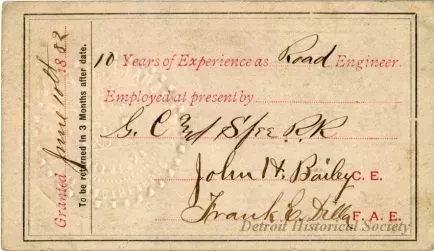 Granted June 10th 1882
To be returned in 3 Months after date.
10 Years of Experience as Road Engineer.
Employed at present by
R.R.
John H. Bailey C. E.
Frank C. F. A. E.
Detroit Historical Society